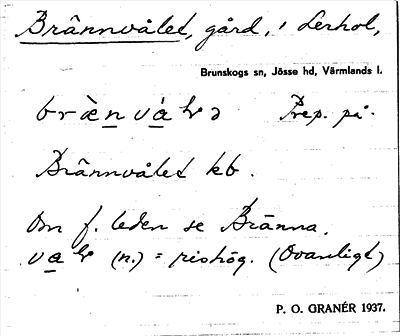 Brännvålet, gård, i Lerhol,
Brunskogs sn, Jösse hd, Värmlands l.
Prep. på.
Brännvålet kb.
Om f. leden se Bränna.
(n.) = rishög. (Ovanligt)
P. O. GRANÉR 1937.